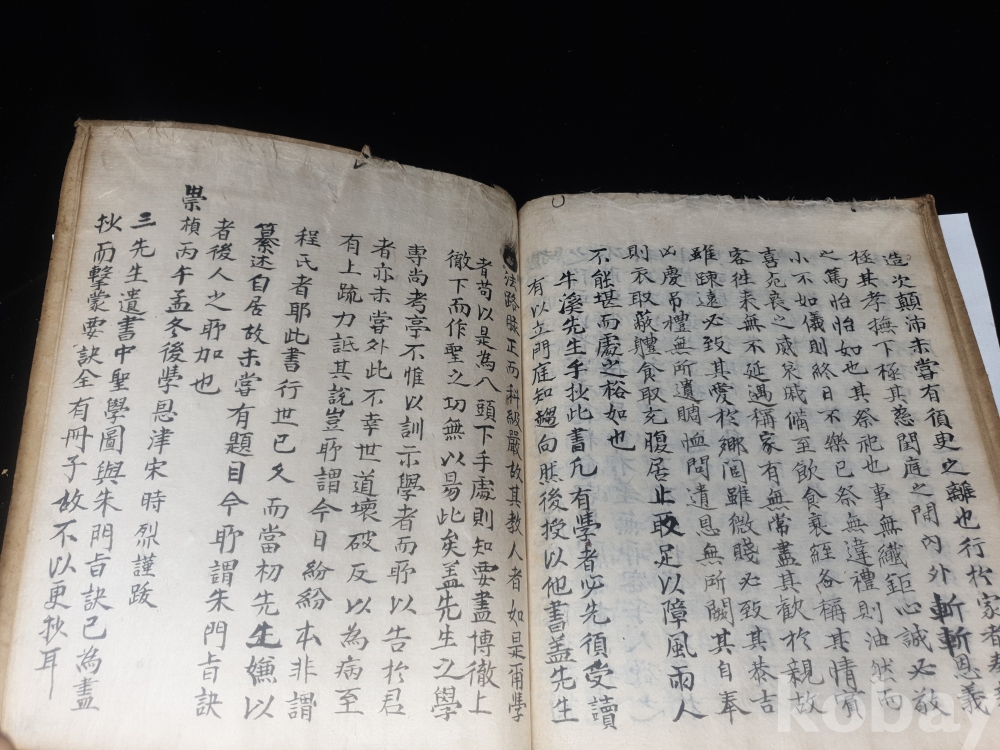 造次顛沛未嘗有須臾之離也行於家者奉親
極其孝撫下極其慈閨庭之間內外斬斬恩義
之篤怡怡如也其祭祀也事無纖鉅心誠必敬
小不如儀則終日不樂已祭無違禮則油然而
喜死喪之威哀戚備至飮食衰絰各稱其情賓
客往來無不延遇稱家有無常盡其歡於親故
雖踈遠必致其愛於鄕閭雖微賤必致其恭吉
凶慶吊禮無所遺賙恤問遺恩無所闕其自奉
則衣取蔽軆食取充腹居止取足以障風雨人
不能堪而處之裕如也
牛溪先生手抄此書凡有學者必先須受讀
有以立門庭知趨向然後授以他書盖先生
法路脉正而科級嚴故其教人者如是爾學
者苟以是為八頭下手處則知要盡博徹上
徹下而作聖之功無以易此矣盖先生之學
專尚考亭不惟以訓示學者而所以告於君
者亦未嘗外此不幸世道壞破反以為病至
有上疏力詆其說豈所謂今日紛紛本非謂
程氏者耶此書行世已久而當初先生嫌以
纂述自居故未嘗有題目今所謂朱門旨訣
者後人之所加也
崇禎丙午孟冬後學恩津宋時烈謹跋
三先生遺書中聖學圖與朱門旨訣已為盡
抄而擊蒙要訣全有冊子故不以更抄耳
kobay